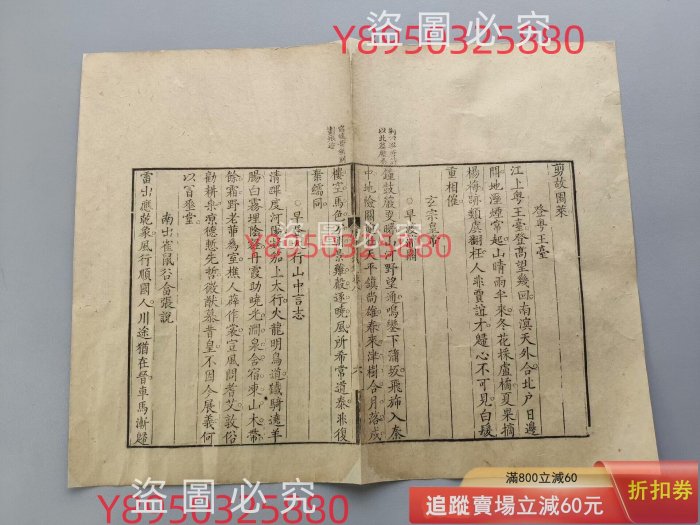 盜圖必究
Y8950325880
剪故園萊
登粵王臺
江上粵王臺登高望幾回南溟天外合北户日邊
開地溼煙常起山晴雨半來冬花採盧橘夏果摘
楊梅跡類虞翻枉人非賈誼才歸心不可見白
重相催
玄宗皇帝
早
關
鐘鼓嚴更曙山河野望通鳴鑾下蒲坂飛旆入秦
中地險關逾壯天平鎮尚雄春來津樹合月落戍
樓空馬色分朝景雞聲逐曉風所希常道泰非復
棄繻同
早登太行山中言志
清蹕度河陽凝笳上太行火龍明鳥道鐵騎遶羊
腸白霧埋陰壑丹霞助曉光澗泉含宿凍山木帶
餘霜野老茅為室樵人薜作裳宣風問耆艾敦俗
勸耕桑涼德慙先哲徽猷慕昔皇不因今展義何
以冒垂堂
南出雀鼠谷答張說
雷出應乾象風行順國人川途猶在晉車馬漸歸
盜圖必究
Y8950325880
滿800立減60
追蹤賣場立減60元
折扣券